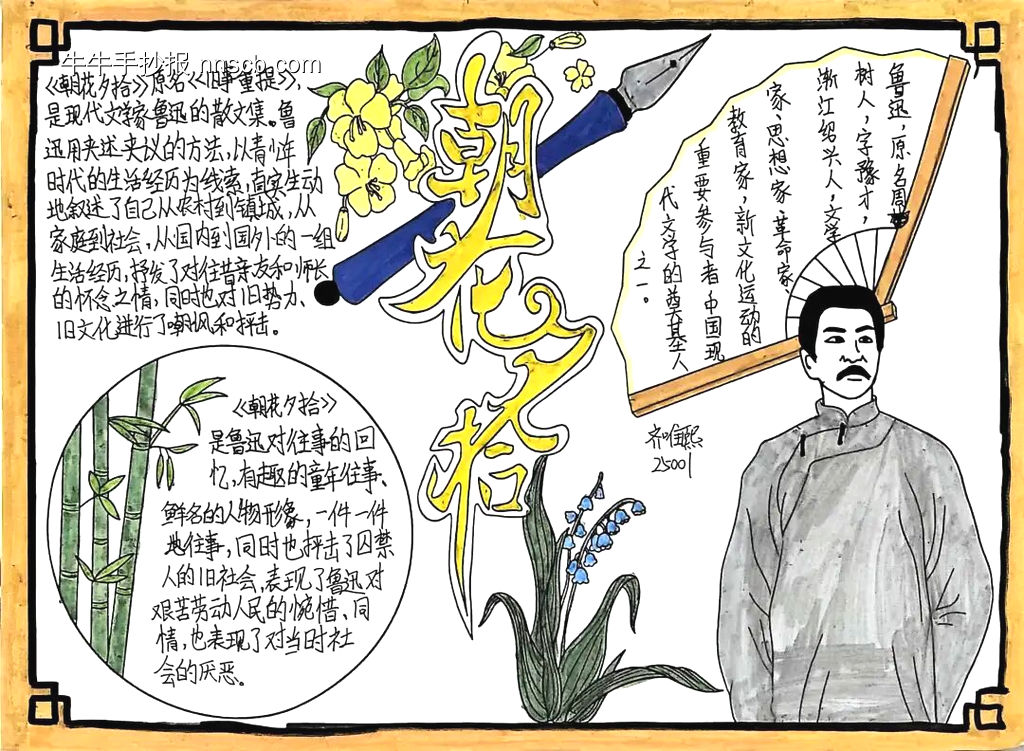 牛牛手抄报 nnscb.com
《朝花夕拾》原名《旧事重提》,
是现代文学家鲁迅的散文集。鲁
迅用夹述夹议的方法,以青少年
时代的生活经历为线索,真实生动
地叙述了自己从农村到镇城,从
家庭到社会,从国内到国外的一组
生活经历,抒发了对往昔亲友和师长
的怀念之情,同时也对旧势力、
旧文化进行了嘲风和抨击。
朝花夕拾
鲁迅,原名周
树人,字豫才,
浙江绍兴人,文学
家、思想家、革命家
教育家,新文化运动的
重要参与者中国现
代文学的奠基人
之一。
《朝花夕拾》
是鲁迅对往事的回
忆,有趣的童年往事、
鲜名的人物形象,一件一件
地往事,同时也抨击了囚禁
人的旧社会,表现了鲁迅对
艰苦劳动人民的惋惜、同
情,也表现了对当时社
会的厌恶。
25001